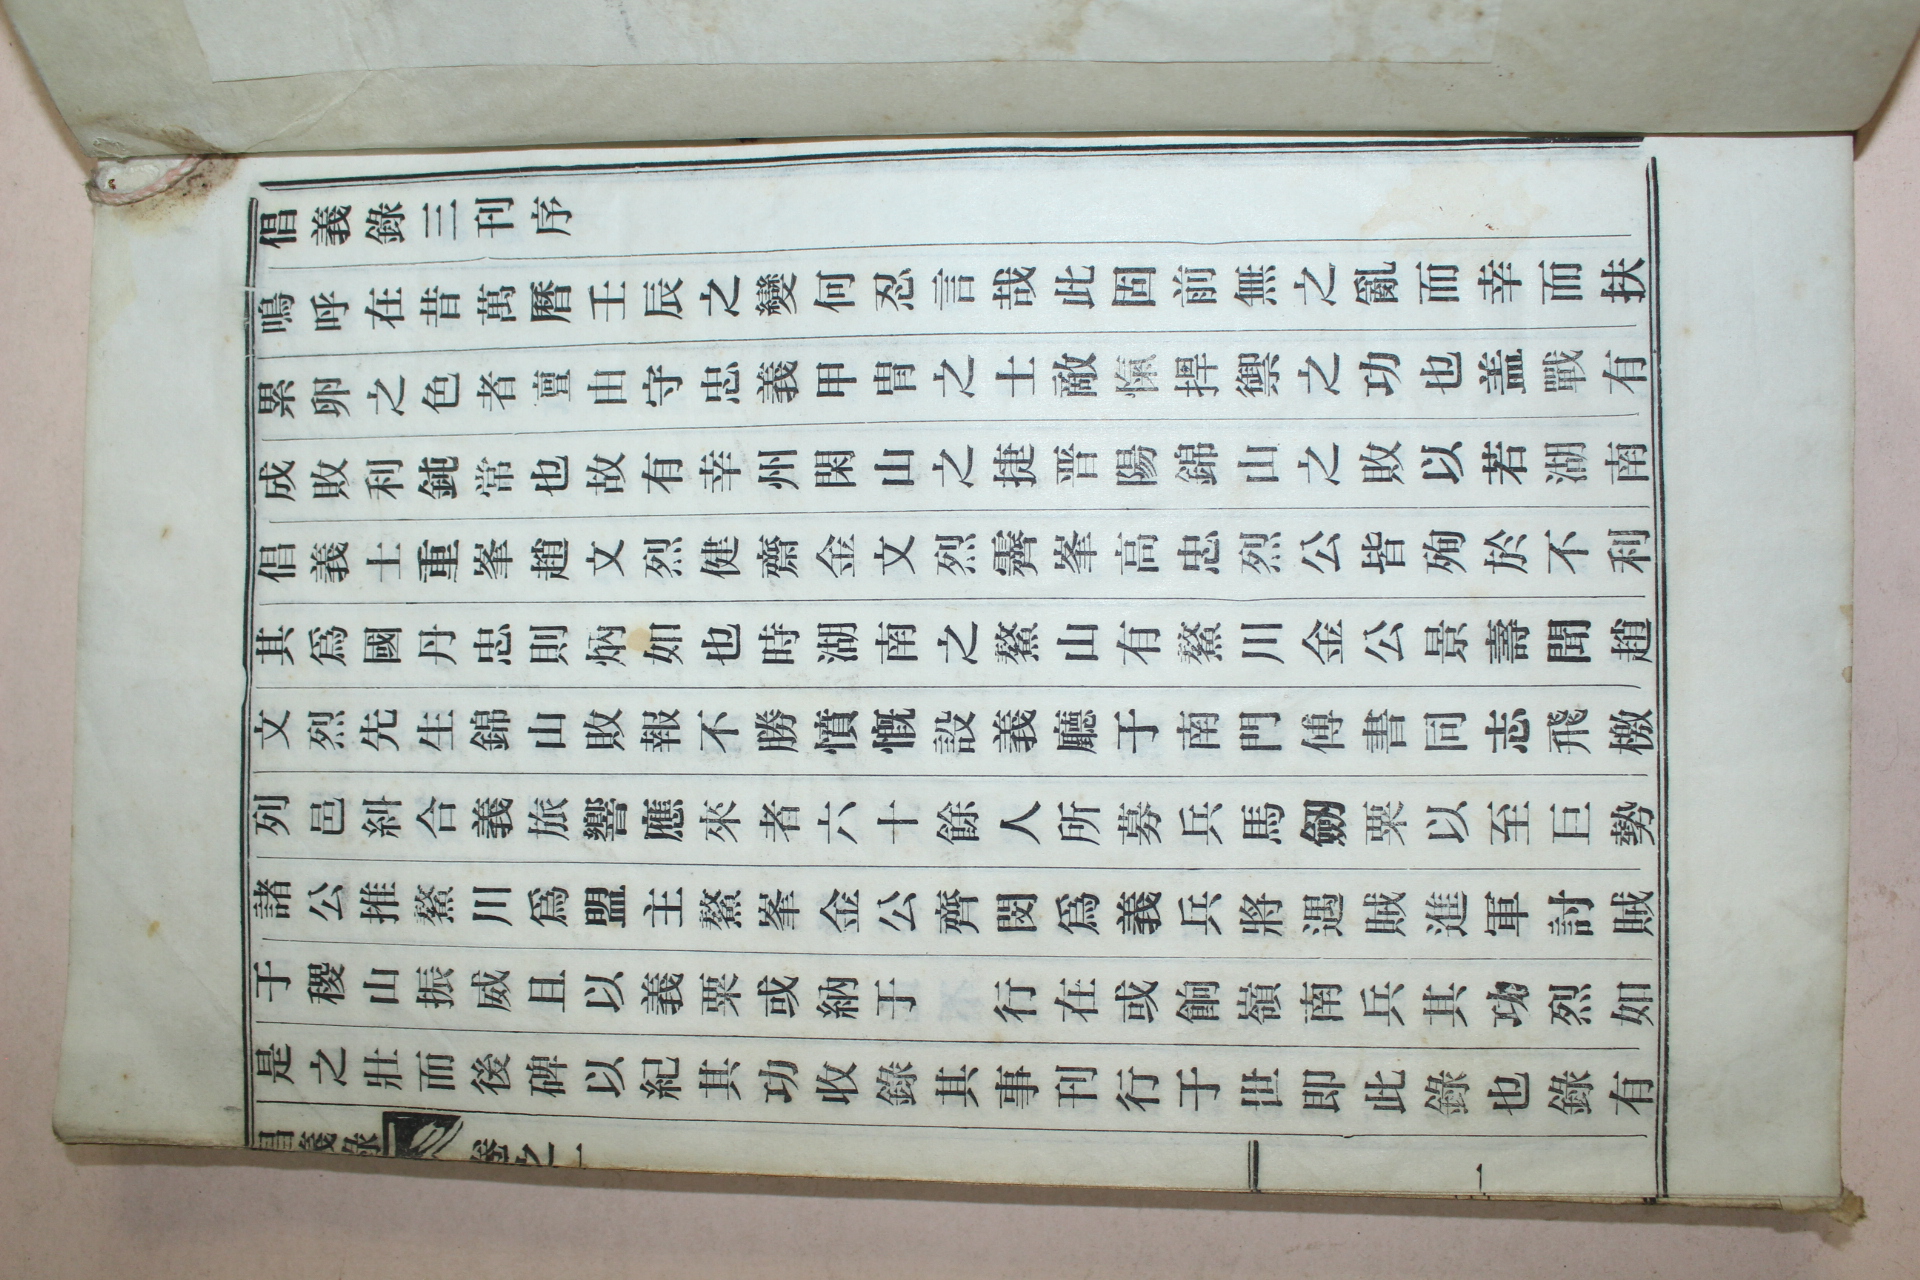 倡義錄三刊序
嗚呼在昔萬曆壬辰之變何忍言哉此固前無之亂而幸而扶
累卵之色者亶由守忠義甲胄之士敵愾捍禦之功也盖戰有
成敗利鈍常也故有幸州閑山之捷晋陽錦山之敗以若湖南
倡義士重峯趙文烈健齋金文烈霽峯高忠烈公皆殉於不利
其爲國丹忠則炳如也時湖南之鰲山有鰲川金公景壽聞趙
文烈先生錦山敗報不勝憤慨設義廳于南門傳書同志飛檄
列邑糾合義旅響應來者六十餘人所募兵馬劒粟以至巨勢
諸公推鰲川爲盟主鰲峯金公齊閔爲義兵將遇賊進軍討賊
于稷山振威且以義粟或納于 行在或餉嶺南兵其功烈如
是之壯而後碑以紀其功收錄其事刊行于世即此錄也錄有
倡義錄 卷之一 一